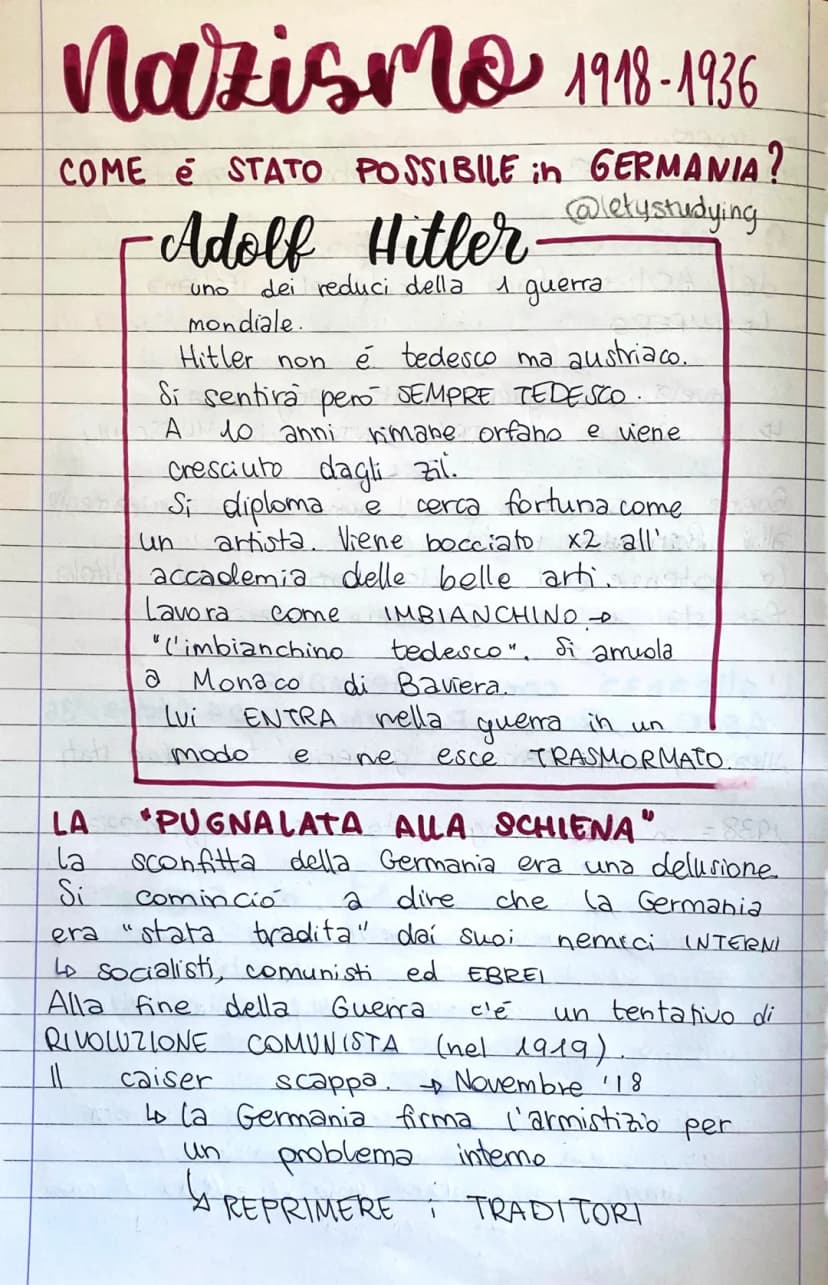 nazismo 1918-1936
COME é STATO POSSIBILE in GERMANIA?
@letystudying
Adolf Hitler
uno dei reduci della 1 guerra
mondiale.
Hitler non é tedesco ma austriaco.
Si sentirà però SEMPRE TEDESCO.
A 10 anni rimane orfano e viene
cresciuto dagli zii.
Si diploma e cerca fortuna come
un artista. Viene bocciato x2 all'
accademia delle belle arti.
Lavora come IMBIANCHINO →
"l'imbianchino tedesco". Si arruola
a Monaco di Baviera.
Lui ENTRA nella guerra in un
modo e ne esce TRASMORMATO.
LA "PUGNALATA ALLA SCHIENA"
La sconfitta della Germania era una delusione
Si cominció a dire che la Germania
era "stata tradita" dai suoi nemici INTERNI
↳ socialisti, comunisti ed EBREI
Alla fine della Guerra c'é un tentativo di
RIVOLUZIONE COMUNISTA (nel 1919).
Il caiser scappa. → Novembre '18
↳ la Germania firma l'armistizio per
un problema interno
↳ REPRIMERE i TRADITORI